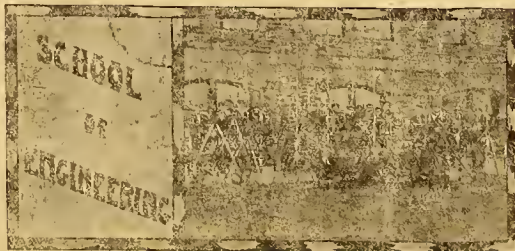 SCHOOL
OF
ENGINEERING